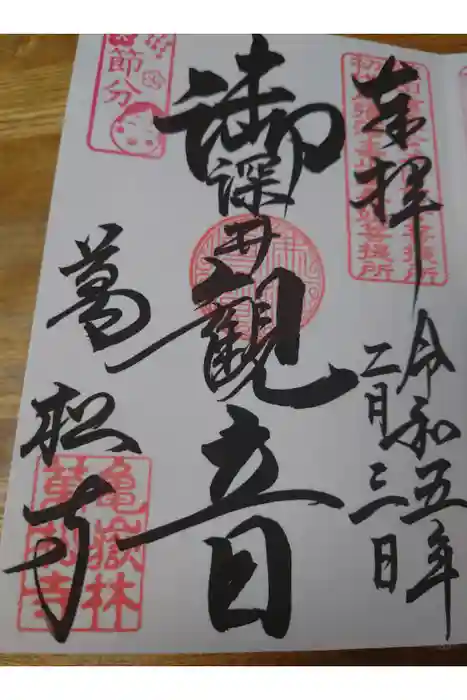 奉拝
令和五年
二月三日
御深井観音
節分
萬松寺
亀嶽林
萬松寺